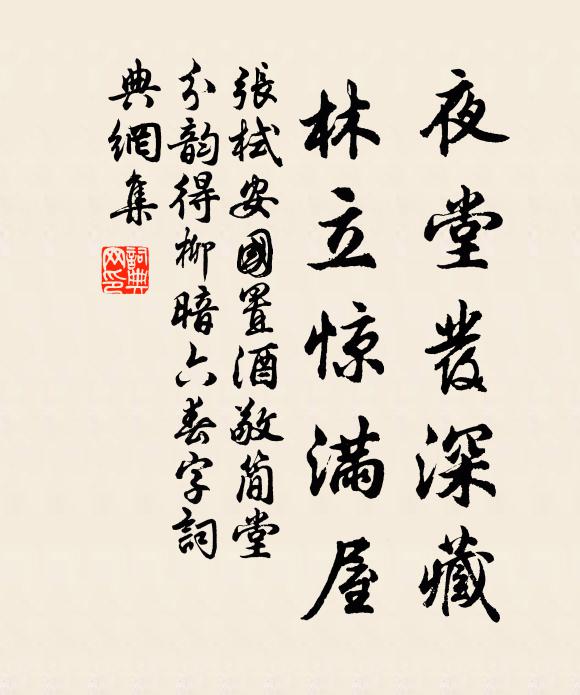 夜堂發深藏
林立惊满屋
張栻安國置酒敬簡堂
分韵得柳暗六春字詞
典網集
詞典網印